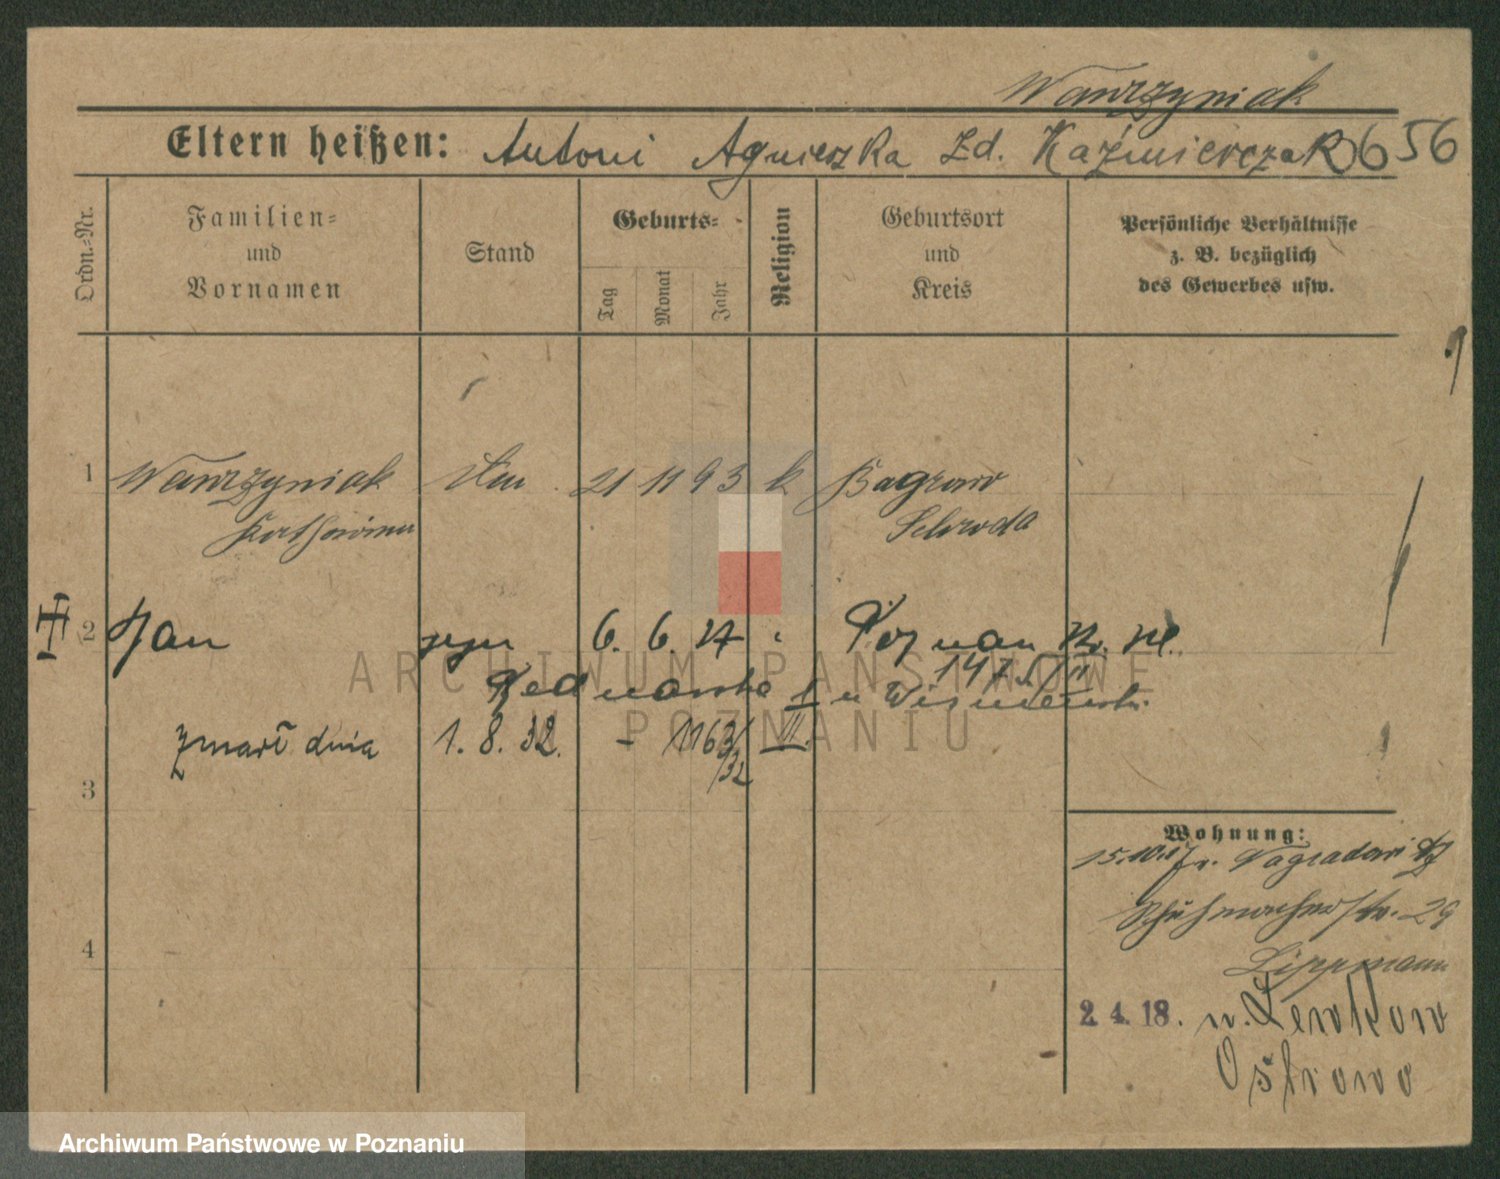 Wawrzyniak
Eltern heißen: Antoni Agnieszka zd. Kaźmierczak 656
Ordn.-Nr.
Familien-
und
Vornamen
Stand
Geburts-
Tag
Monat
Jahr
Religion
Geburtsort
und
Kreis
Persönliche Verhältnisse
z. B. bezüglich
des Gewerbes usw.
1 Wawrzyniak 21 11 93 k Bagrowo
Schroda
2 Jan syn 6. 6. Poznan
zmarł dnia 1. 8. 32. - 1163/32 III.
3
4
Wohnung:
15.10.17 v.
Schuhmacherstr. 29
Lippmann
2. 4. 18. n. Lewkow
Ostrowo
ARCHIWUM PAŃSTWOWE
W POZNANIU
Archiwum Państwowe w Poznaniu